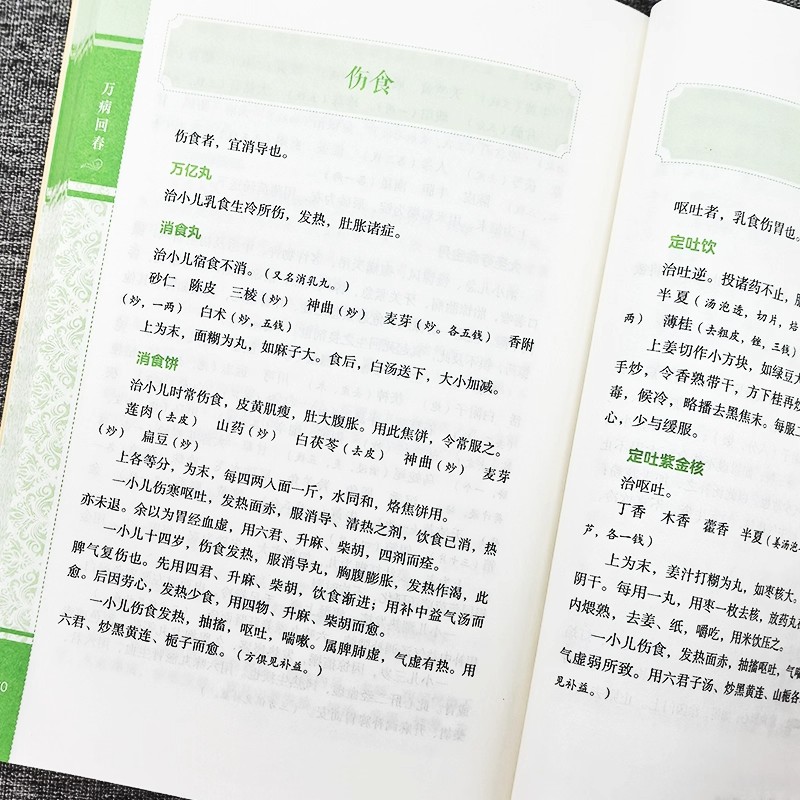 万病回春
伤食
伤食者，宜消导也。
万亿丸
治小儿乳食生冷所伤，发热，肚胀诸症。
消食丸
治小儿宿食不消。（又名消乳丸。）
砂仁 陈皮 三棱（炒） 神曲（炒） 麦芽（炒。各五钱） 香附
（炒，一两） 白术（炒，五钱）
上为末，面糊为丸，如麻子大。食后，白汤送下，大小加减。
消食饼
治小儿时常伤食，皮黄肌瘦，肚大腹胀。用此焦饼，令常服之。
莲肉（去皮） 山药（炒） 白茯苓（去皮） 神曲（炒） 麦芽
（炒） 扁豆（炒）
上各等分，为末，每四两入面一斤，水同和，烙焦饼用。
一小儿伤寒呕吐，发热面赤，服消导、清热之剂，饮食已消，热
亦未退。余以为胃经血虚，用六君、升麻、柴胡，四剂而痊。
一小儿十四岁，伤食发热，服消导丸，胸腹膨胀，发热作渴，此
脾气复伤也。先用四君、升麻、柴胡，饮食渐进；用补中益气汤而
愈。后因劳心，发热少食，用四物、升麻、柴胡而愈。
一小儿伤食发热，抽搐，呕吐，喘嗽。属脾肺虚，气虚有热。用
六君、炒黑黄连、栀子而愈。（方俱见补益。）
0
呕吐者，乳食伤胃也。
定吐饮
治吐逆。投诸药不止，
半夏（汤泡透，切片，焙
两） 薄桂（去粗皮，锉，三钱）
上姜切作小方块，如绿豆大
手炒，令香熟带干，方下桂再炒
毒，候冷，略播去黑焦末。每服
心，少与缓服。
定吐紫金核
治呕吐。
丁香 木香 藿香 半夏（姜汤泡
芦，各一钱）
上为末，姜汁打糊为丸，如枣核大。
阴干。每用一丸，用枣一枚去核，放药丸
内煨熟，去姜、纸，嚼吃，用米饮压之。
一小儿伤食，发热面赤，抽搐呕吐，气喘
气虚弱所致。用六君子汤，炒黑黄连、山栀各
见补益。）